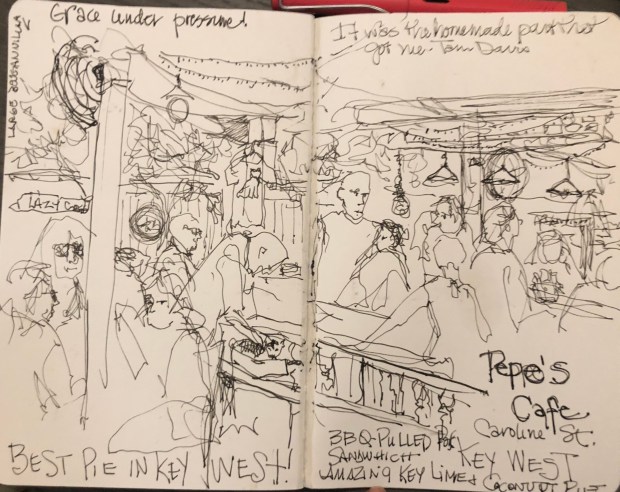 Grace under pressure!
It was the homemade part that
got me - Tom Davis
LARGE
LAZY
Pepe's
Cafe
Caroline St.
KEY WEST
BBQ-PULLED
SANDWHICH
AMAZING KEY LIME &
COCONUT PIE
BEST PIE IN KEY WEST!